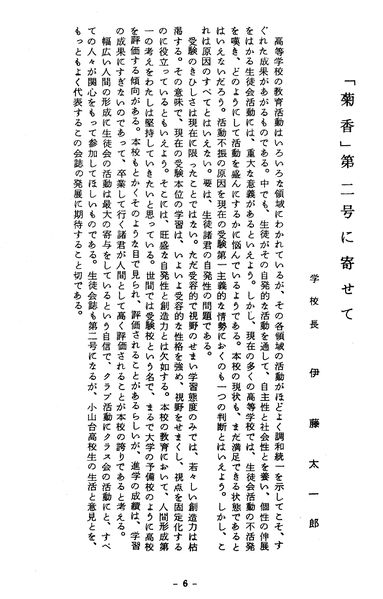 「菊香」第二号に寄せて
学校長　伊藤太一郎
高等学校の教育活動はいろいろな領域にわかれているが、その各領域の活動がほどよく調和統一を示してこそ、す
ぐれた成果があがるものである。中でも、生徒がその自発的な活動を通して、自主性と社会性とを養い、個性の伸展
をはかる生徒会活動には、重大な意義があるといえよう。しかし、現在の多くの高等学校では、生徒会活動の不活発
を嘆き、どのようにして活動を盛んにするかに悩んでいるようである。本校の現状も、まだ満足できる状態であると
はいえないだろう。活動不振の原因を現在の受験第一主義的な情勢におくのも一つの判断とはいえよう。しかし、こ
れは原因のすべてとはいえない。要は、生徒諸君の自発性の問題である。
受験のきびしさは現在に限ったことではない。ただ受容的で視野のせまい学習態度のみでは、若々しい創造力は枯
渇する。その意味で、現在の受験本位の学習は、いよいよ受容的な性格を強め、視野をせまくし、視点を固定化する
のに役立っているともいえよう。そこには、旺盛な自発性と創造力とは欠如する。本校の教育において、人間形成第
一の考えをわたしは堅持していきたいと思っている。世間では受験校という名で、まるで大学の予備校のように高校
を評価する傾向がある。本校もとかくそのような目で見られ、評価されることがあるらしいが、進学の成績は、学習
の成果にすぎないのであって、卒業して行く諸君が人間として高く評価されることが本校の誇りであると考える。
幅広い人間の形成に生徒会の活動は最大の寄与をしているという自信で、クラブ活動にクラス会の活動にと、すべ
ての人々が関心をもって参加してほしいものである。生徒会誌も第二号になるが、小山台高校生の生活と意見とを、
もっともよく代表するこの会誌の発展に期待すること切である。
- 6 -